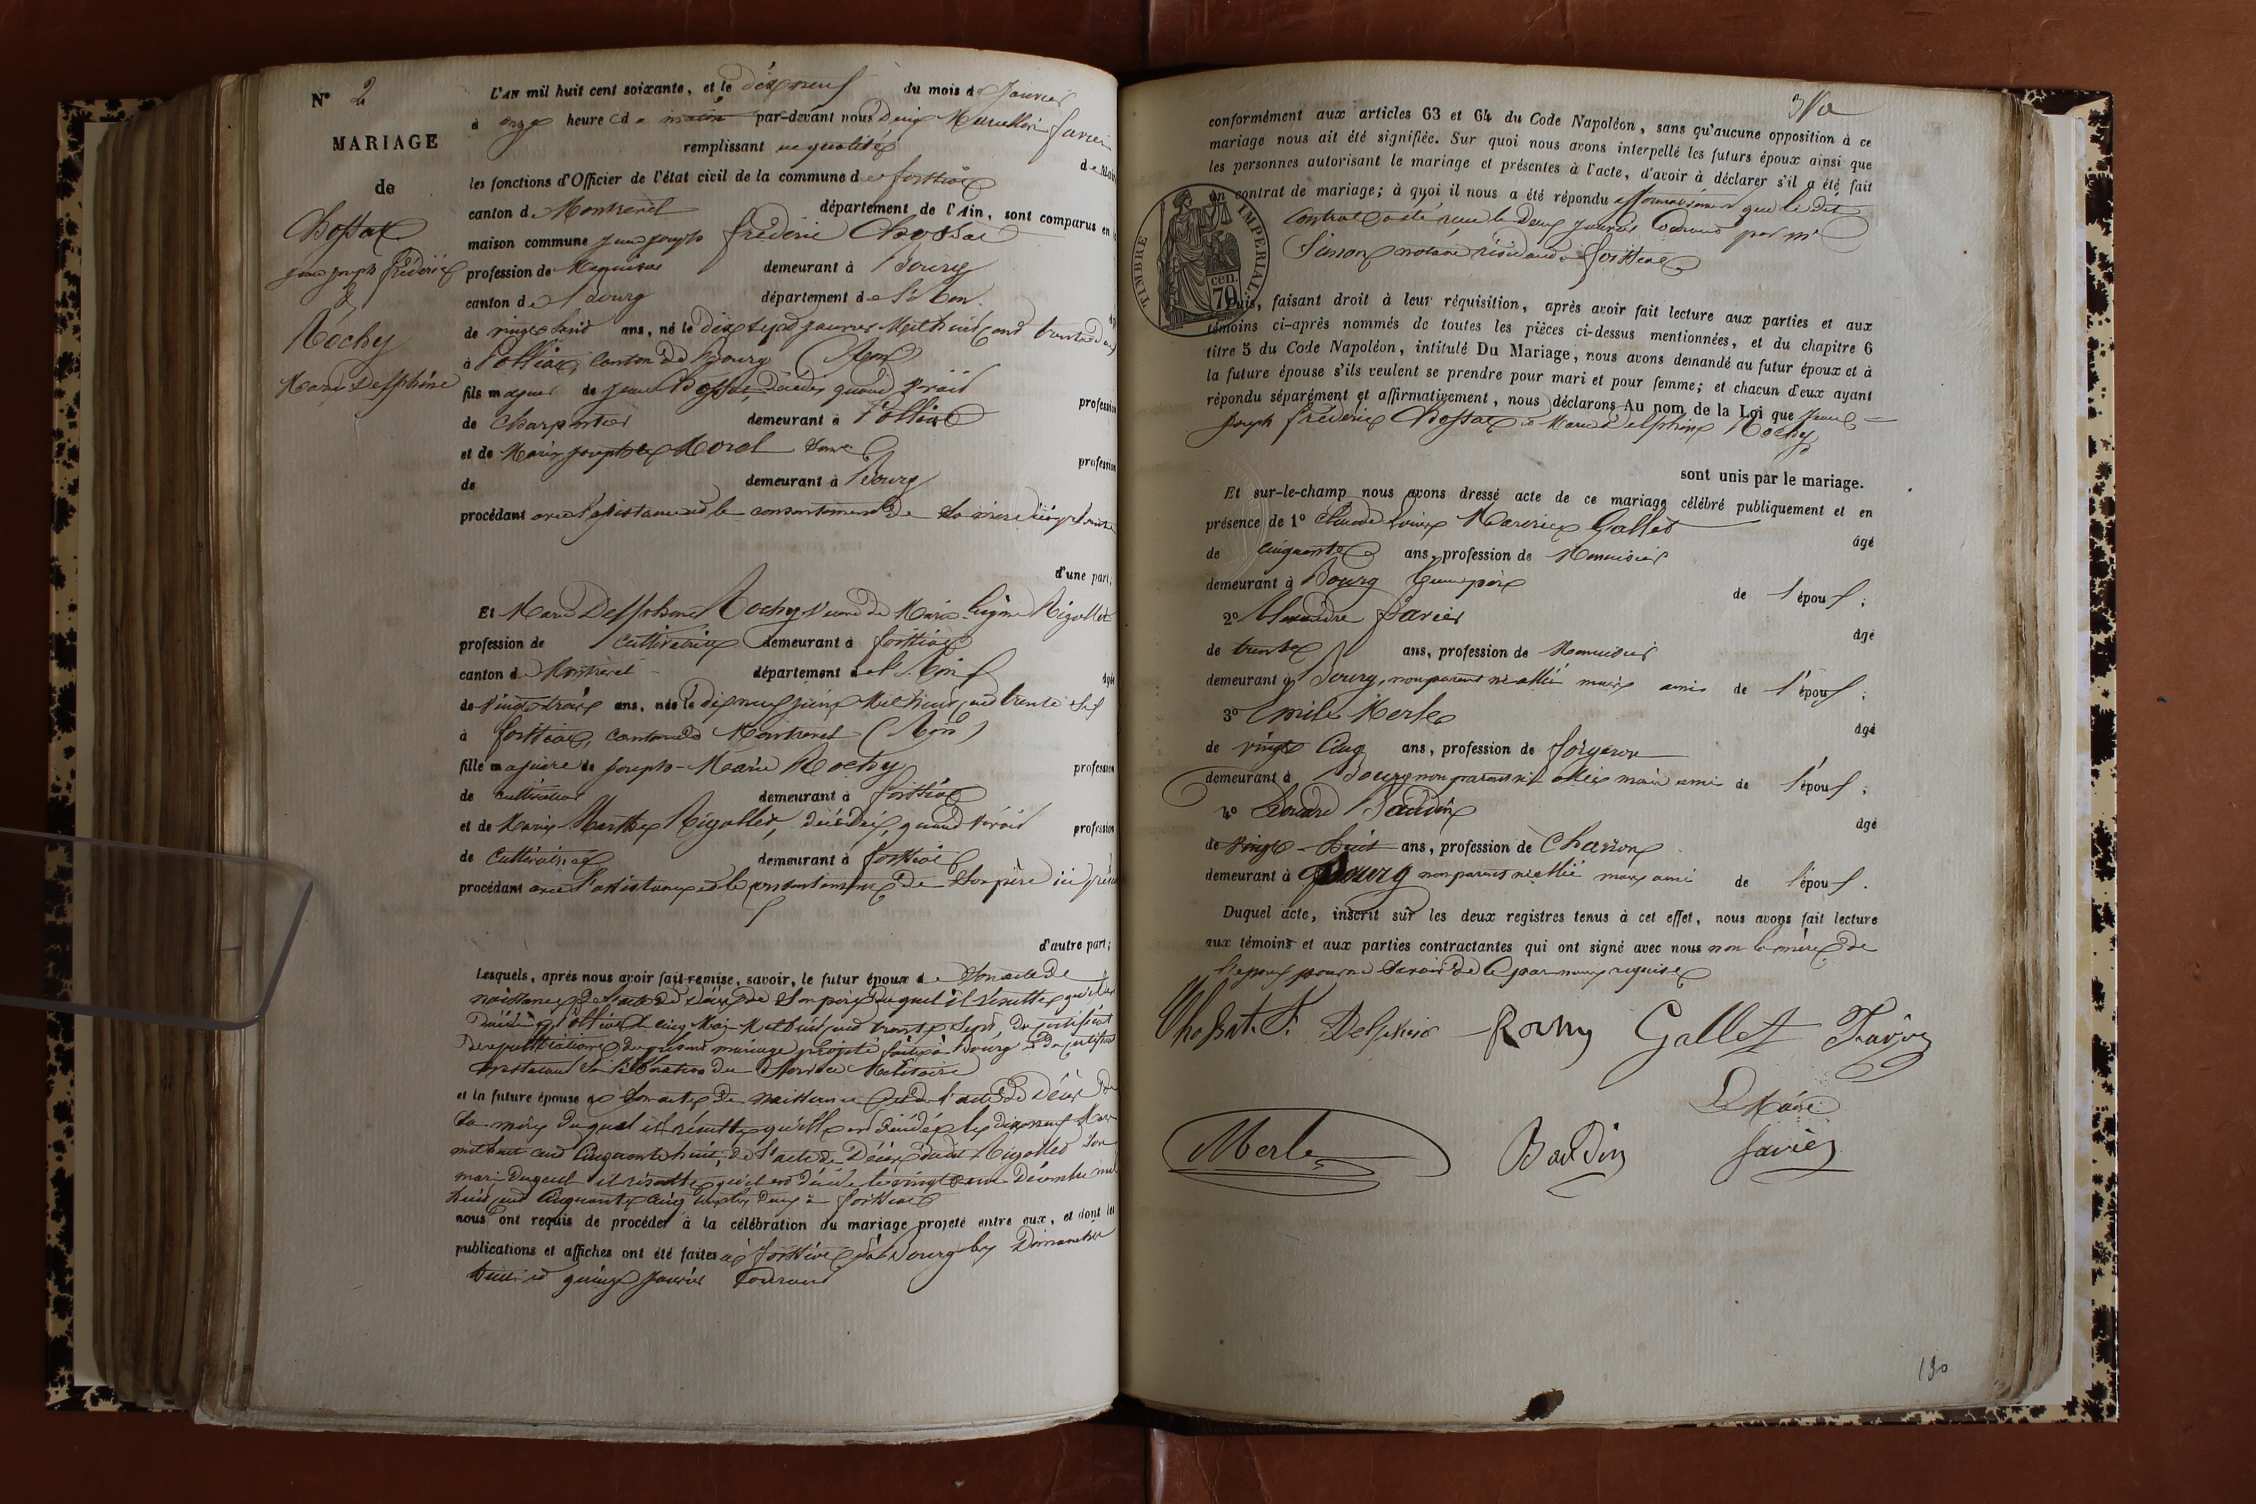 N° 2
MARIAGE
de
Chossat
jean joseph frédéric
&
Rochy
Marie Delphine
L'AN mil huit cent soixante, et le dix neuf du mois de Janvier
à onze heures du matin par-devant nous Denis Marcellin favier
remplissant en qualité de Maire
les fonctions d'Officier de l'état civil de la commune de foissiat
canton de Montrevel département de l'Ain, sont comparus en la
maison commune jean joseph frédéric Chossat
profession de Menuisier demeurant à Bourg
canton de Bourg département de l'Ain
de vingt huit ans, né le dix sept janvier Mil huit cent trente deux
à Polliat, canton de Bourg (Ain)
fils majeur de jean Chossat, décédé, quand vivait profession
de Charpentier demeurant à Polliat
et de Marie josephte Morel sans profession
de demeurant à Bourg
procédant avec l'assistance et le consentement de sa mère ici présente
d'une part;
Et Marie Delphine Rochy veuve de Marie Eugène Rigollet
profession de Cultivatrice demeurant à foissiat
canton de Montrevel département de l'Ain âgée
de vingt trois ans, née le dix neuf juin Mil huit cent trente six
à foissiat, canton de Montrevel (Ain)
fille majeure de Joseph-Marie Rochy profession
de cultivateur demeurant à foissiat
et de Marie Marthe Rigollet, décédée, quand vivait profession
de Cultivatrice demeurant à foissiat
procédant avec l'assistance et le consentement de son père ici présent
d'autre part;
Lesquels, après nous avoir fait remise, savoir, le futur époux de son acte de
naissance, de l'acte de décès de son père duquel il résulte qu'il est
décédé à Polliat le cinq Mai Mil huit cent trente sept, du certificat
de publications du présent mariage projeté faites à Bourg et du certificat
constatant sa libération du Service Militaire
et la future épouse de son acte de naissance et de l'acte de décès de
sa mère duquel il résulte qu'elle est décédée le dix neuf Mars
mil huit cent cinquante huit, de l'acte de Décès dudit Rigollet son
mari duquel il résulte qu'il est décédé le vingt Décembre mil
huit cent cinquante cinq tous les deux à foissiat
nous ont requis de procéder à la célébration du mariage projeté entre eux, et dont les
publications et affiches ont été faites à foissiat et à Bourg les Dimanches
huit et quinze janvier courant
conformément aux articles 63 et 64 du Code Napoléon, sans qu'aucune opposition à ce
mariage nous ait été signifiée. Sur quoi nous avons interpellé les futurs époux ainsi que
les personnes autorisant le mariage et présentes à l'acte, d'avoir à déclarer s'il a été fait
un contrat de mariage; à quoi il nous a été répondu affirmativement que le dit
Contrat a été reçu le Deux janvier Courant par Mr
notaire résidant à foissiat
TIMBRE IMPERIAL
70 cen.
Puis, faisant droit à leur réquisition, après avoir fait lecture aux parties et aux
témoins ci-après nommés de toutes les pièces ci-dessus mentionnées, et du chapitre 6
titre 5 du Code Napoléon, intitulé Du Mariage, nous avons demandé au futur époux et à
la future épouse s'ils veulent se prendre pour mari et pour femme; et chacun d'eux ayant
répondu séparément et affirmativement, nous déclarons Au nom de la Loi que Jean
Joseph frédéric Chossat et Marie Delphine Rochy
sont unis par le mariage.
Et sur-le-champ nous avons dressé acte de ce mariage célébré publiquement et en
présence de 1° Claude Louis Gallet âgé
de cinquante ans, profession de Menuisier
demeurant à Bourg beau père de l'époux;
2° Alexandre favier âgé
de trente ans, profession de Menuisier
demeurant à Bourg, non parent ni allié mais ami de l'époux;
3° Emile Merle âgé
de vingt Cinq ans, profession de forgeron
demeurant à Bourg non parent ni allié mais ami de l'époux;
4° Baudin âgé
de vingt-huit ans, profession de Charron
demeurant à Bourg non parent ni allié mais ami de l'époux.
Duquel acte, inscrit sur les deux registres tenus à cet effet, nous avons fait lecture
aux témoins et aux parties contractantes qui ont signé avec nous non la mère de
l'époux pour ne savoir de ce par nous requise
Chossat. F. Delphine Rochy Gallet Favier
Le Maire
Merle Baudin favier
190